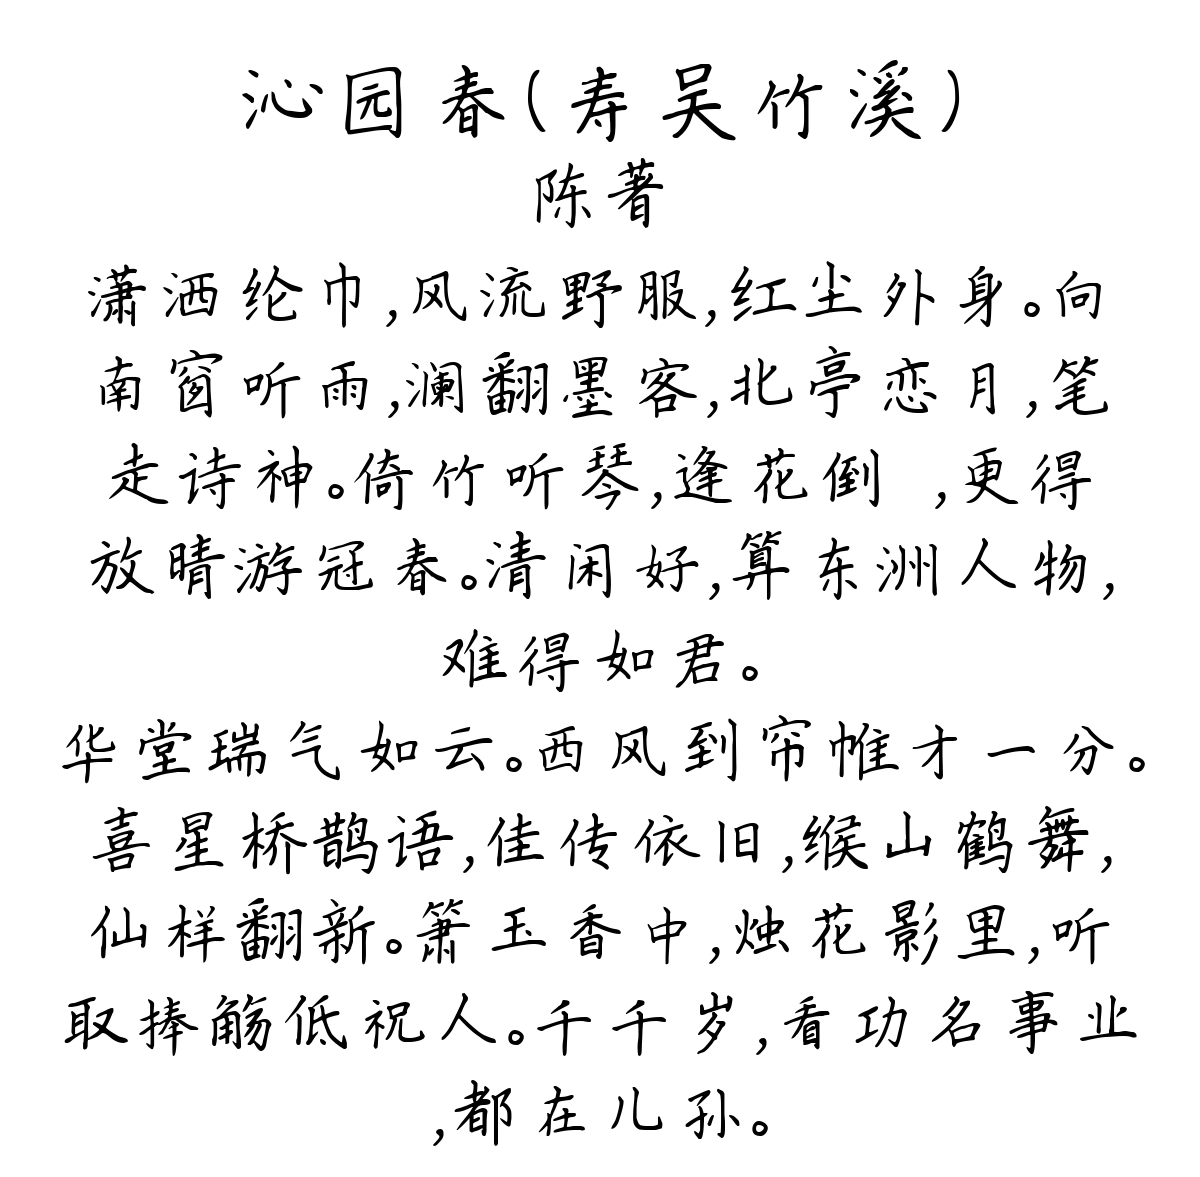 沁园春(寿吴竹溪)
陈著
潇洒纶巾,风流野服,红尘外身。向
南窗听雨,澜翻墨客,北亭恋月,笔
走诗神。倚竹听琴,逢花倒 ,更得
放晴游冠春。清闲好,算东洲人物,
难得如君。
华堂瑞气如云。西风到帘帷才一分。
喜星桥鹊语,佳传依旧,缑山鹤舞,
仙样翻新。箫玉香中,烛花影里,听
取捧觞低祝人。千千岁,看功名事业
,都在儿孙。